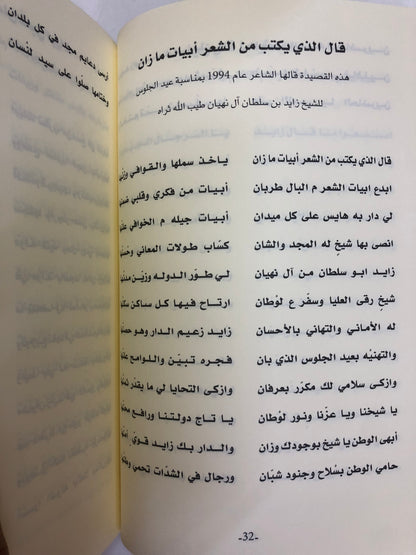 قال الذي يكتب من الشعر أبيات ما زان
هذه القصيدة قالها الشاعر عام 1994 بمناسبة عيد الجلوس
للشيخ زايد بن سلطان آل نهيان طيب الله ثراه
قال الذي يكتب من الشعر أبيات ما زان ياخذ سملها والقوافي
ابدع ابيات الشعر م البال طربان أبيات من فكري وقلبي
لي دار به هايس على كل ميدان أبيات جيله م الخوافي
انصى بها شيخٍ له المجد والشان كسّاب طولات المعاني
زايد ابو سلطان من آل نهيان لي طوّر الدوله وزيّن
شيخ رقى العليا وسفّر ع لوْطان ارتاح فيها كل ساكن
له الأماني والتهاني بالأحسان زايد زعيم الدار وهو
والتهنيه بعيد الجلوس الذي بان فجره تبيّن واللوامح
وازكى سلامي لك مكرّر بعرفان وازكى التحايا لي ما يقدر
يا شيخنا ويا عزّنا ونور لوْطان يا تاج دولتنا ورافع
أبهى الوطن يا شيخ بوجودك وزان والدار بك زايد قويّ
حامي الوطن بسْلاح وجنود شبّان ورجال في الشدّات تحمي
-32-
في كل بلدان
وختامها صلّوا على سيد لنسان